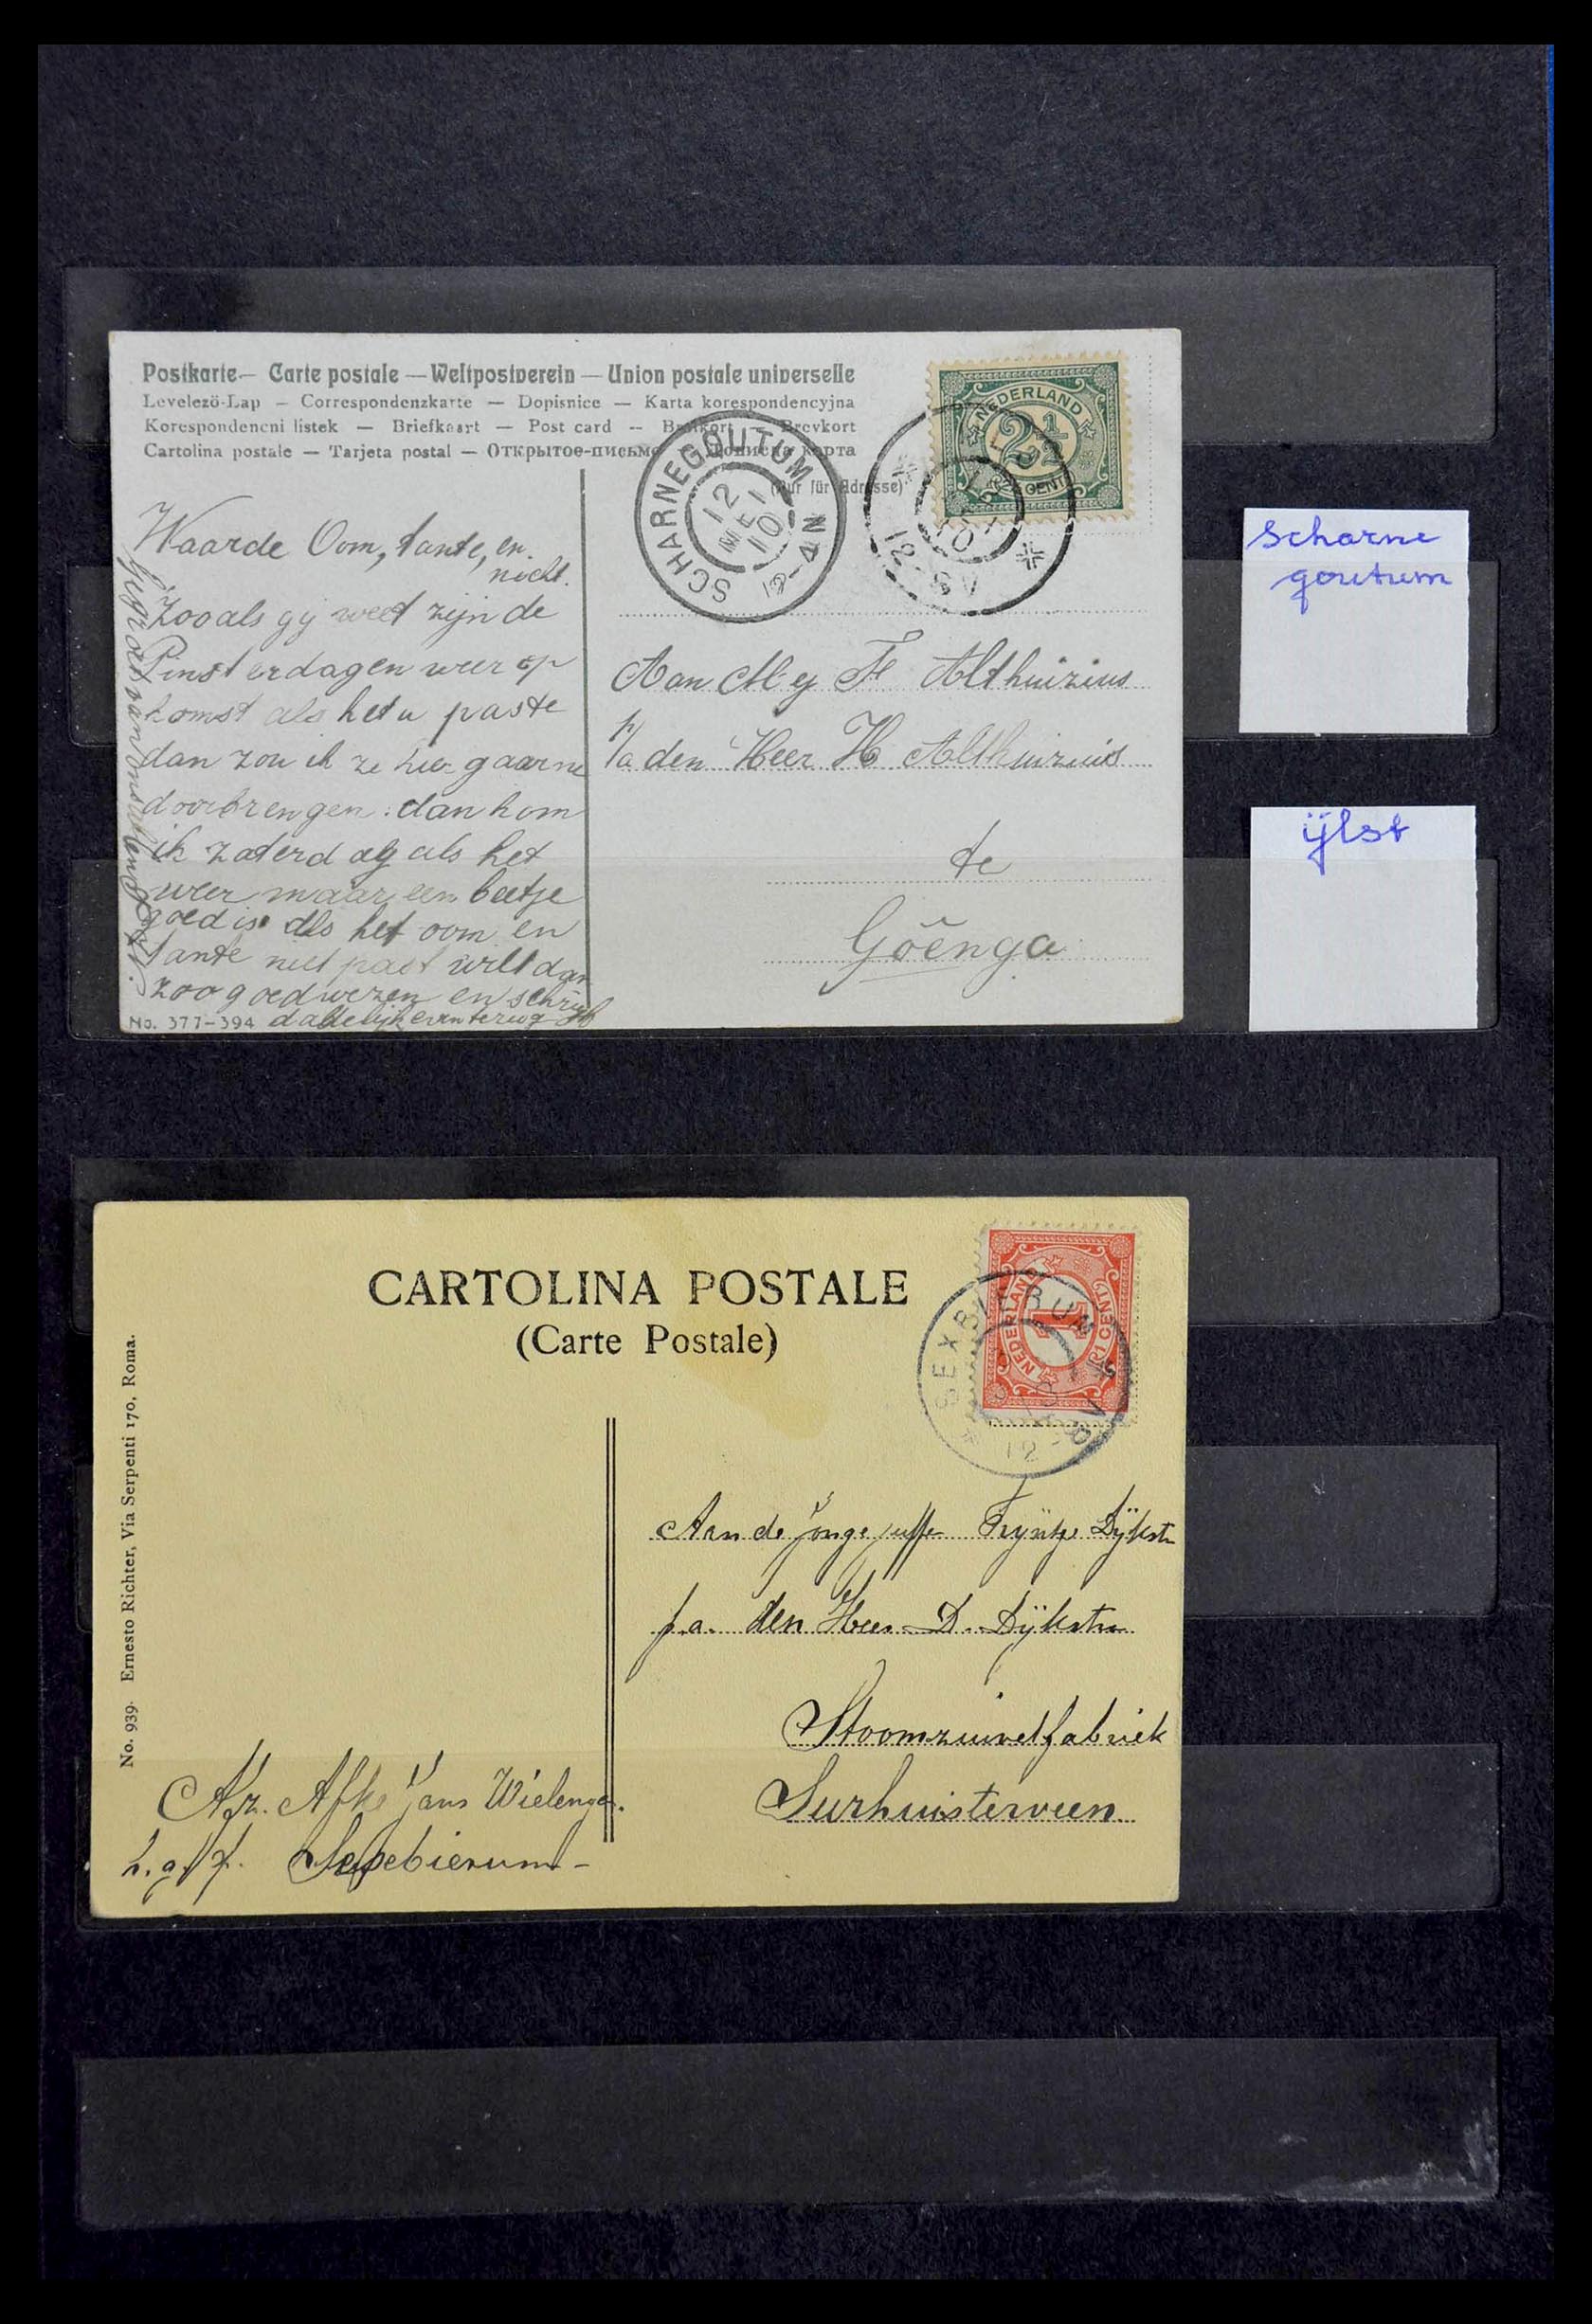 Postkarte — Carte postale — Weltpostverein — Union postale universelle
Levelezö-Lap — Correspondenzkarte — Dopisnice — Karta korespondencyjna
Korespondencni listek — Briefkaart — Post card — Brefkort — Brevkort
Cartolina postale — Tarjeta postal — Открытое-письмо — Дописна карта
(Nur für Adresse)
NEDERLAND
2½
CENT
SCHARNEGOUTUM
12 MEI 10
12-4N
Waarde Oom, tante, en
nicht.
Zooals gij weet zijn de
Pinsterdagen weer op
komst als het u paste
dan zou ik ze hier gaarne
doorbrengen: dan kom
ik zaterdag als het
weer maar een beetje
goed is. Als het oom en
tante niet past wilt dan
zoo goed wezen en schrijf
dadelijk even terug
No. 377-394
Aan Mej F Althuizius
p/a den Heer H Althuizius
te
Gôênga
Scharne
goutum
ijlst
CARTOLINA POSTALE
(Carte Postale)
NEDERLAND
1
1 CENT
SEXBIERUM
12-8V
No. 939. Ernesto Richter, Via Serpenti 170, Roma.
Aan de jonge juffr Trijntje Dijkstra
p.a. den Heer D. Dijkstra
Stoomzuivelfabriek
Surhuisterveen
Afz. Afke Jans Wielenga.
Sexbierum